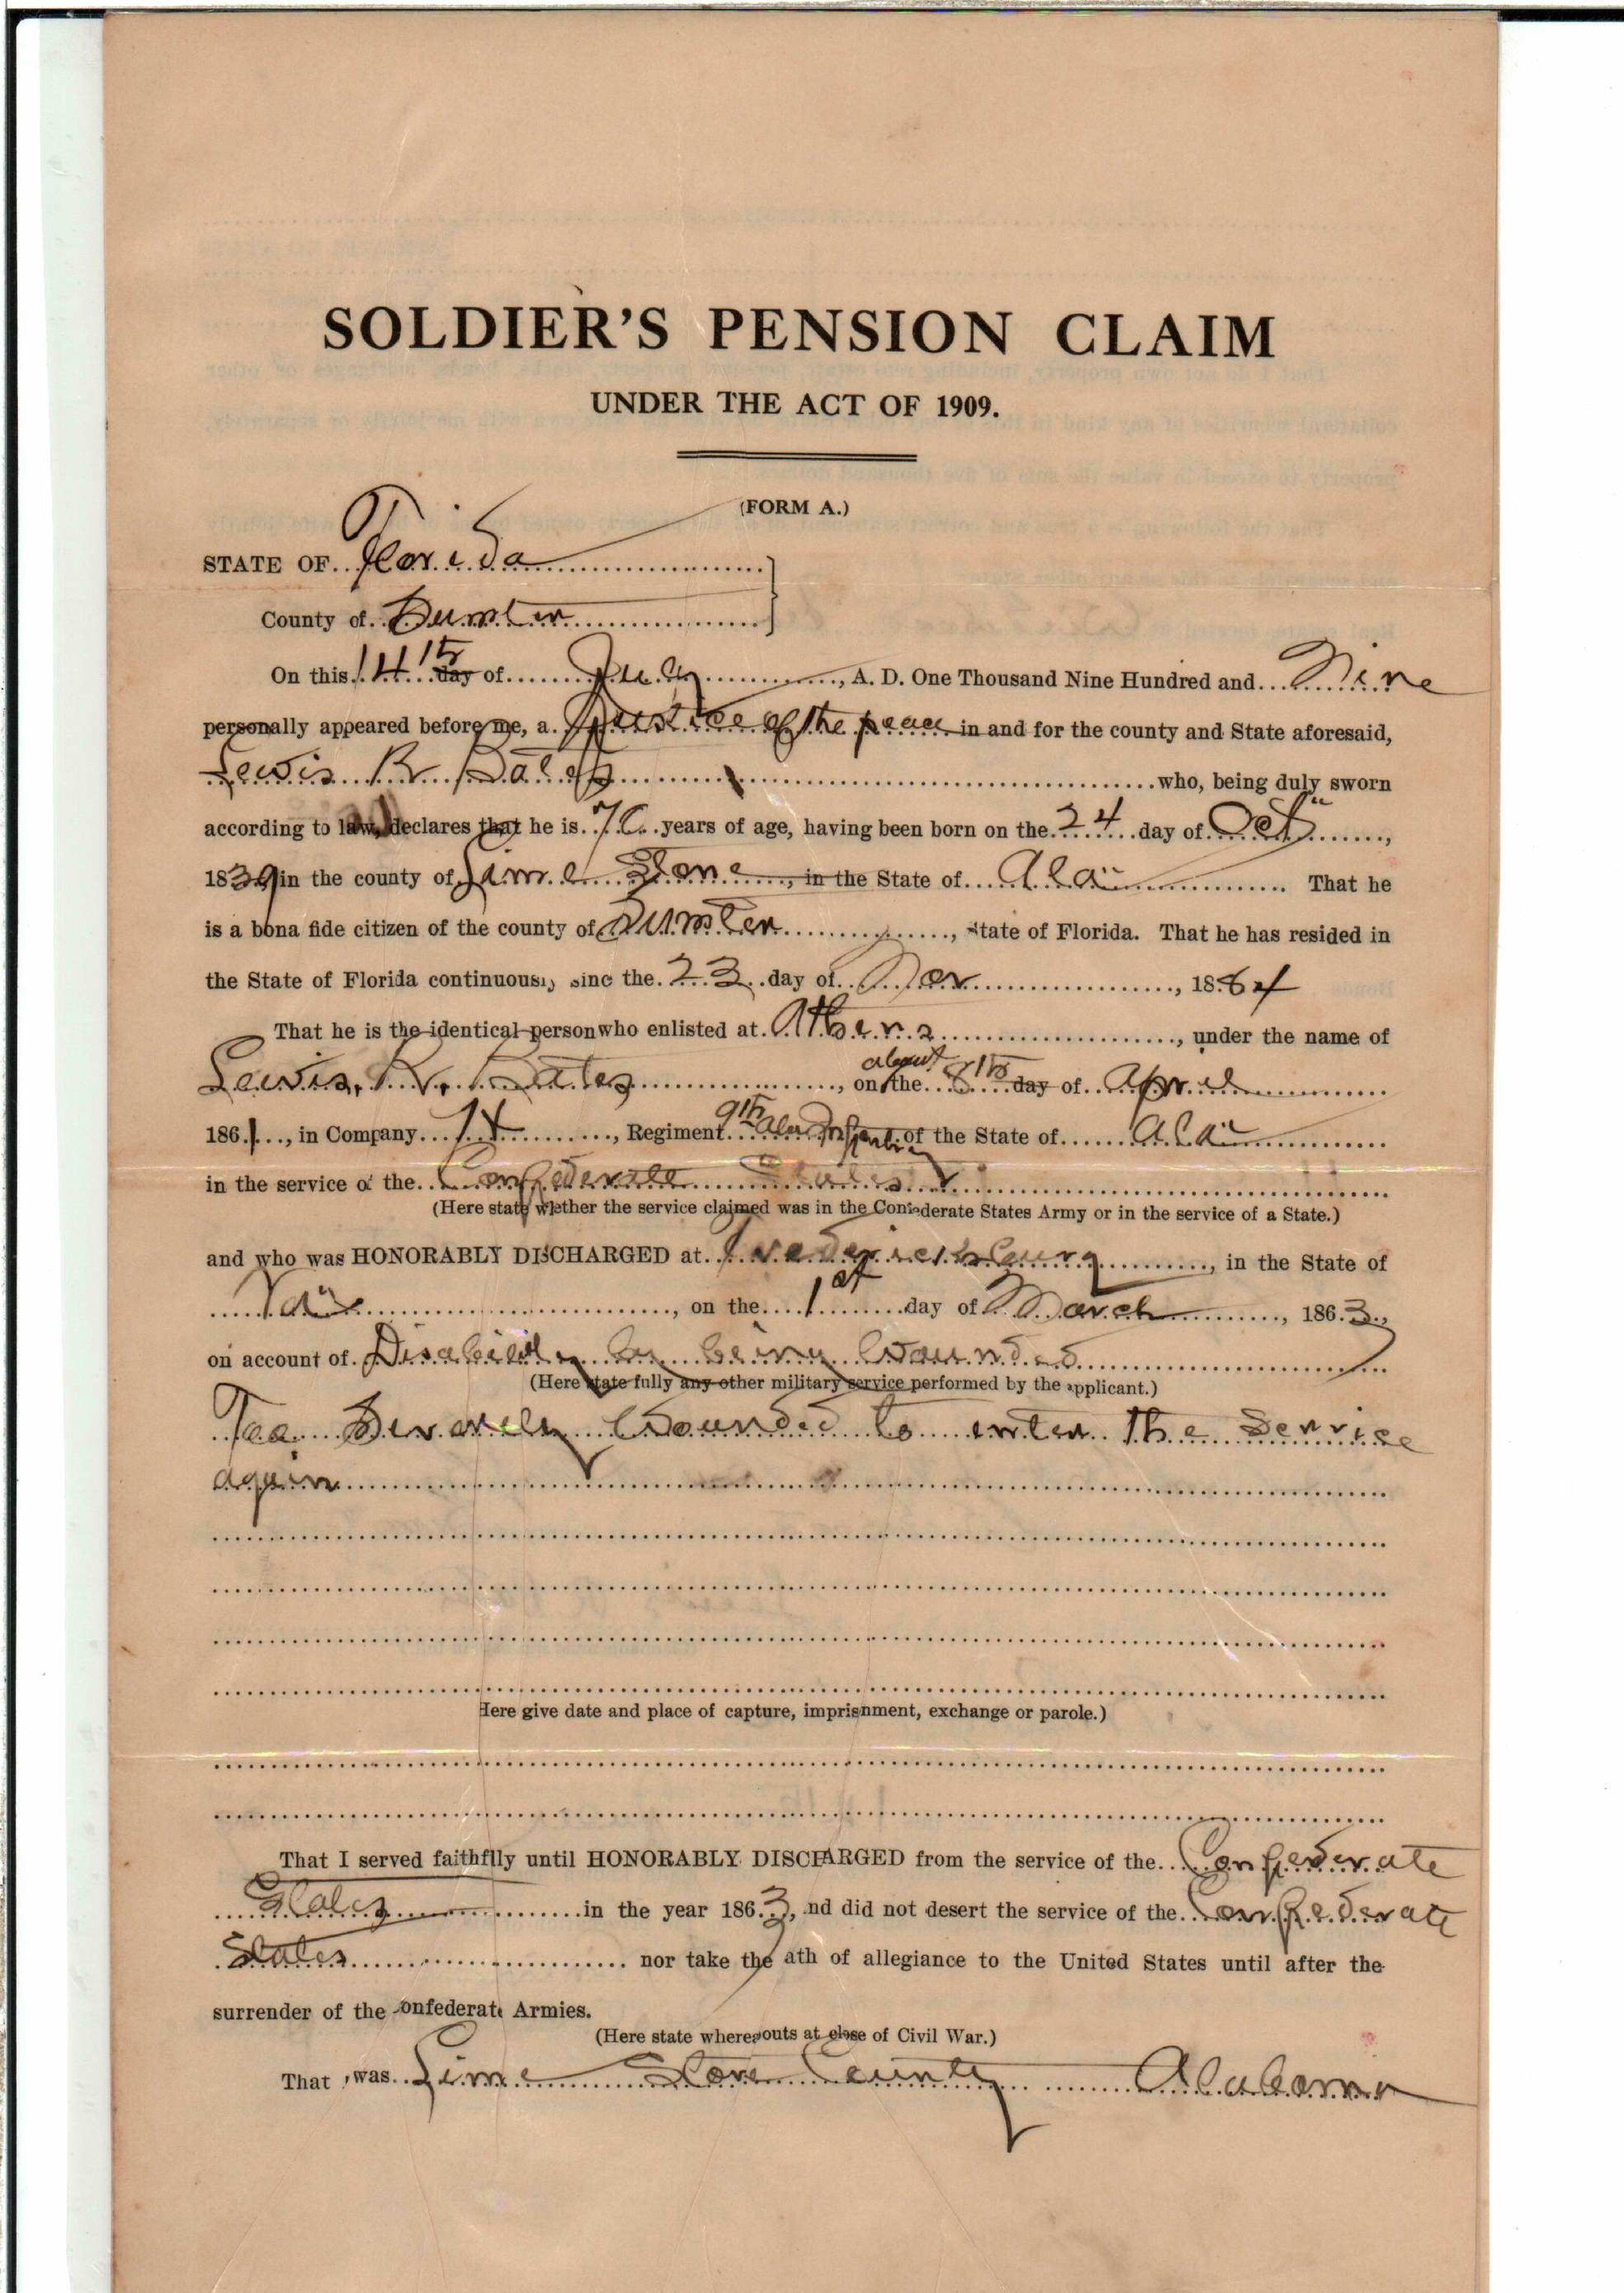 SOLDIER'S PENSION CLAIM
UNDER THE ACT OF 1909.
(FORM A.)
STATE OF Florida
County of Sumter
On this 14th day of July, A. D. One Thousand Nine Hundred and Nine
personally appeared before me, a Justice of the peace in and for the county and State aforesaid,
Lewis R Bates who, being duly sworn
according to law, declares that he is 70 years of age, having been born on the 24 day of Oct,
1839 in the county of Lime Stone, in the State of Ala. That he
is a bona fide citizen of the county of Sumter, State of Florida. That he has resided in
the State of Florida continuously sinc the 23 day of Nov, 1884
That he is the identical person who enlisted at Athens, under the name of
Lewis. R. Bates, on the about 8th day of April
1861, in Company H, Regiment 9th Ala Infantry of the State of Ala
in the service of the Confederate States
(Here state whether the service claimed was in the Confederate States Army or in the service of a State.)
and who was HONORABLY DISCHARGED at Fredericksburg, in the State of
Va, on the 1st day of March, 1863,
on account of Disability by being Wounded
(Here state fully any other military service performed by the applicant.)
Too Severely Wounded to enter the Service
again
Here give date and place of capture, imprisnment, exchange or parole.)
That I served faithflly until HONORABLY DISCHARGED from the service of the Confederate
States in the year 1863, nd did not desert the service of the Confederate
States nor take the ath of allegiance to the United States until after the
surrender of the onfederate Armies.
(Here state whereouts at close of Civil War.)
That was Lime Stone County Alabama